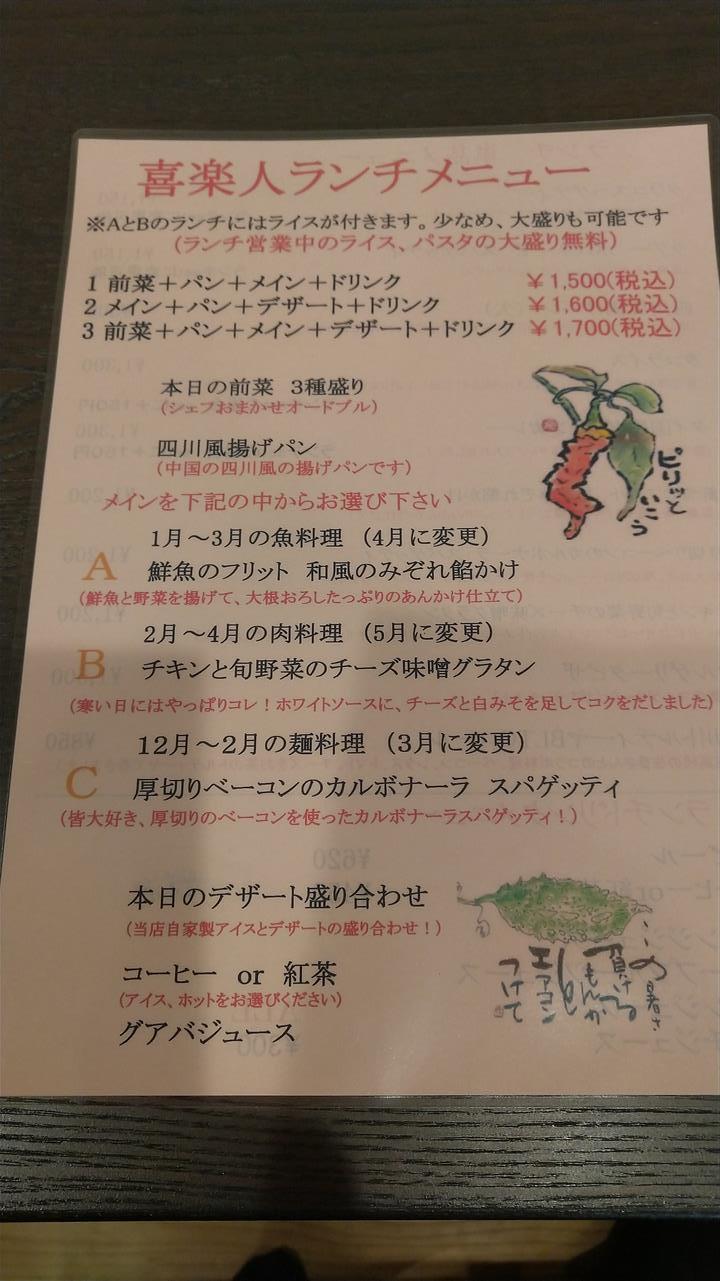 喜楽人ランチメニュー
※AとBのランチにはライスが付きます。少なめ、大盛りも可能です
(ランチ営業中のライス、パスタの大盛り無料)
1 前菜＋パン＋メイン＋ドリンク ￥1,500(税込)
2 メイン＋パン＋デザート＋ドリンク ￥1,600(税込)
3 前菜＋パン＋メイン＋デザート＋ドリンク ￥1,700(税込)
本日の前菜 3種盛り
(シェフおまかせオードブル)
四川風揚げパン
(中国の四川風の揚げパンです)
ピリッと
いこう
メインを下記の中からお選び下さい
1月～3月の魚料理 (4月に変更)
A 鮮魚のフリット 和風のみぞれ餡かけ
(鮮魚と野菜を揚げて、大根おろしたっぷりのあんかけ仕立て)
2月～4月の肉料理 (5月に変更)
B チキンと旬野菜のチーズ味噌グラタン
(寒い日にはやっぱりコレ！ホワイトソースに、チーズと白みそを足してコクをだしました)
12月～2月の麺料理 (3月に変更)
C 厚切りベーコンのカルボナーラ スパゲッティ
(皆大好き、厚切りのベーコンを使ったカルボナーラスパゲッティ！)
本日のデザート盛り合わせ
(当店自家製アイスとデザートの盛り合わせ！)
コーヒー or 紅茶
(アイス、ホットをお選びください)
グアバジュース
この暑さ
負ける
もんか
エアコン
つけて